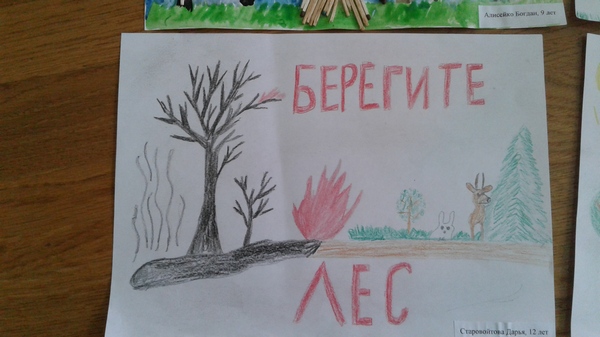 Алисейко Богдан, 9 лет
БЕРЕГИТЕ
ЛЕС
Старовойтова Дарья, 12 лет